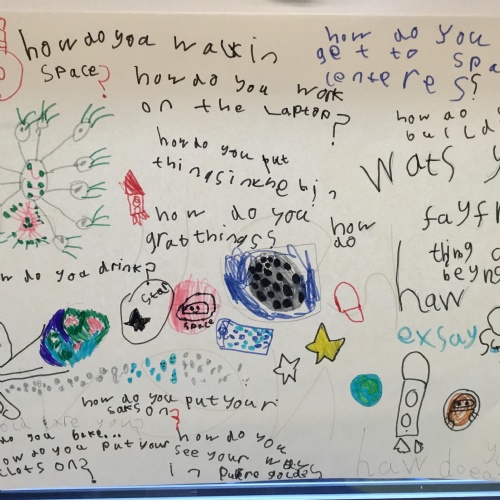 how do you walk in
space?
how do you
get to spa
centeres?
how do you work
on the laptop?
how do
build
how do you put
things in the bin
Wats y
how do you
grab things
how
do
fayfr
thing
beyng
how do you drink?
haw
Star
space
exsay
how do you put your
saks on?
do you bake...
how do you put your
clots on?
how do you
see your way
in
haw does